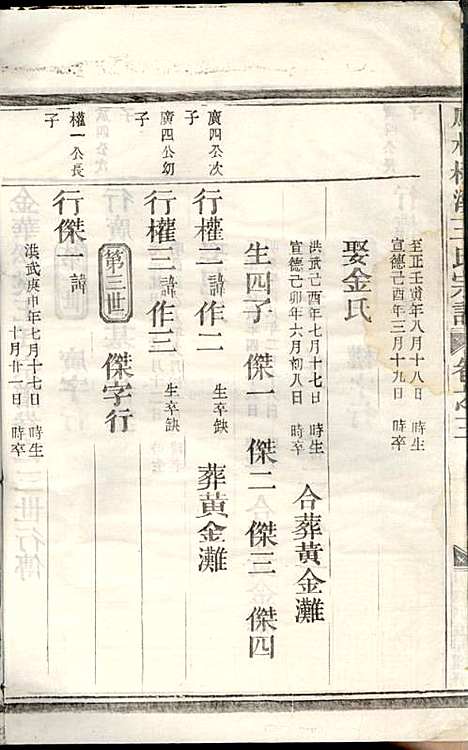 至正壬寅年八月十八日 時生
宣德己酉年三月十九日 時卒
娶金氏
洪武己酉年七月十七日 時生
宣德己卯年六月初八日 時卒
合葬黃金灘
生四子 傑一 傑二 傑三 傑四
廣四公次子
行權二 諱作二 生卒缺 葬黃金灘
廣四公幼子
行權三 諱作三 生卒缺
第三世 傑字行
權一公長子
行傑一 諱
洪武庚申年七月十七日 時生
十月廿一日 時卒